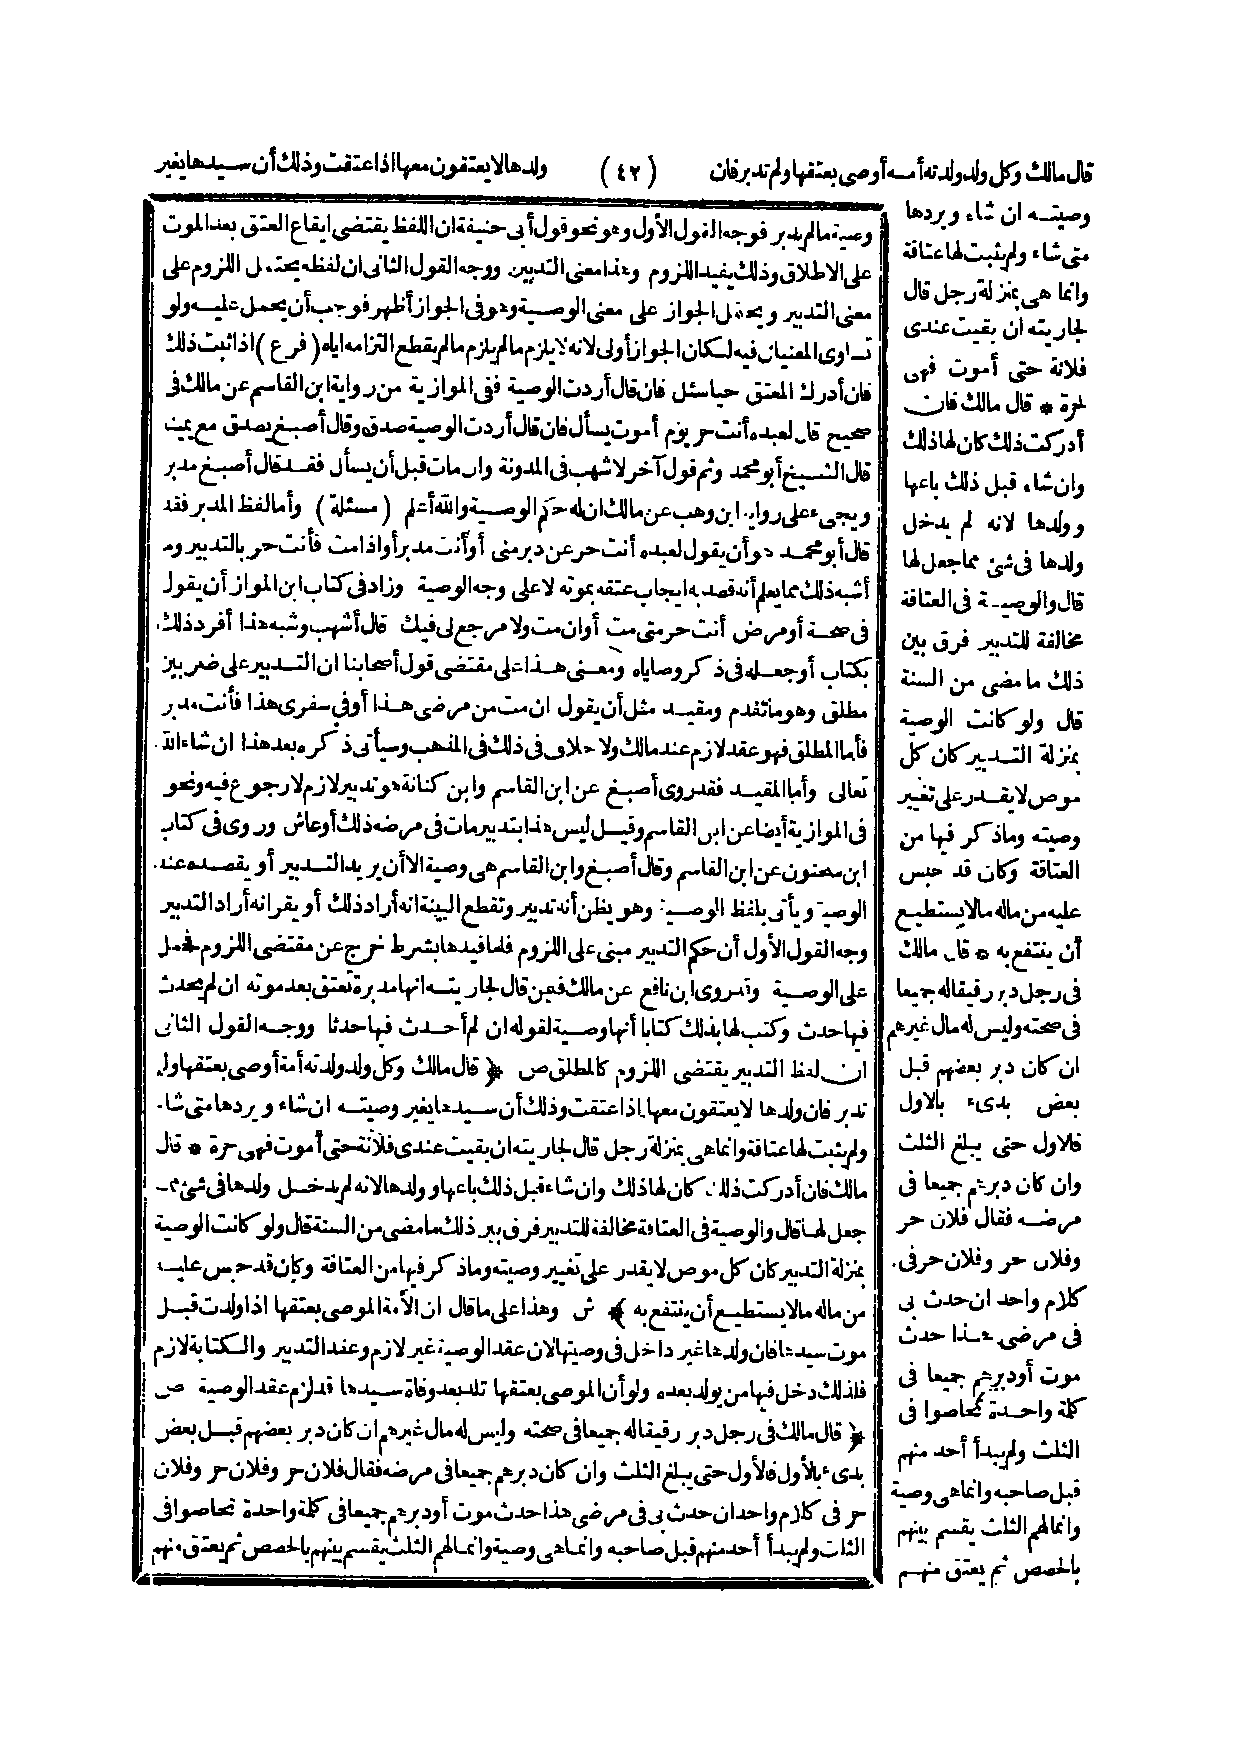 قال مالك وكل ولد ولدته أمة أوصى بعتقها ولم تدبر فان (٤٢) ولدها لا يعتقون معها اذا عتقت وذلك أن سيدها يغير
وصيته ان شاء ويردها
متى شاء ولم يثبت لها عتاقة
وانما هى بمنزلة رجل قال
لجاريته ان بقيت عندى
فلانة حتى أموت فهى
حرة * قال مالك فان
أدركت ذلك كان لها ذلك
وان شاء قبل ذلك باعها
وولدها لانه لم يدخل
ولدها فى شئ مما جعل لها
قال والوصية فى العتاقة
مخالفة للتدبير فرق بين
ذلك ما مضى من السنة
قال ولو كانت الوصية
بمنزلة التدبير كان كل
موص لا يقدر على تغيير
وصيته وما ذكر فيها من
العتاقة وكان قد حبس
عليه من ماله مالا يستطيع
أن ينتفع به * قال مالك
فى رجل دبر رقيقا له جميعا
فى صحته وليس له مال غيرهم
ان كان دبر بعضهم قبل
بعض بدىء بالاول
فالاول حتى يبلغ الثلث
وان كان دبرهم جميعا فى
مرضه فقال فلان حر
وفلان حر وفلان حر فى
كلام واحد ان حدث بى
فى مرضى هذا حدث
موت أو دبرهم جميعا فى
كلمة واحدة تحاصوا فى
الثلث ولم يبدأ أحد منهم
قبل صاحبه وانما هى وصية
وانما لهم الثلث يقسم بينهم
بالحصص ثم يعتق منهم
وصية ما لم يدبر فوجه القول الأول وهو نحو قول أبى حنيفة ان اللفظ يقتضى ايقاع العتق بعد الموت
على الاطلاق وذلك يفيد اللزوم وهذا معنى التدبير ووجه القول الثانى ان لفظه يحتمل اللزوم على
معنى التدبير ويحتمل الجواز على معنى الوصية وهو فى الجواز أظهر فوجب أن يحمل عليه ولو
تساوى المعنيان فيه لكان الجواز أولى لانه لا يلزم ما لم يلزم ما لم يقطع التزامه اياه (فرع) اذا ثبت ذلك
فان أدرك المعتق حيا سئل فان قال أردت الوصية ففى الموازية من رواية ابن القاسم عن مالك فى
صحيح قال لعبده أنت حر يوم أموت يسأل فان قال أردت الوصية صدق وقال أصبغ يصدق مع يمينه
قال الشيخ أبو محمد وثم قول آخر لاشهب فى المدونة وان مات قبل أن يسأل فقد قال أصبغ مدبر
ويجىء على رواية ابن وهب عن مالك ان له حكم الوصية والله أعلم (مسئلة) وأما لفظ المدبر فقد
قال أبو محمد هو أن يقول لعبده أنت حر عن دبر منى أو أنت مدبر أو اذا مت فأنت حر بالتدبير وما
أشبه ذلك مما يعلم أنه قصد به ايجاب عتقه بموته لا على وجه الوصية وزاد فى كتاب ابن المواز أن يقول
فى صحة أو مرض أنت حر متى مت أو ان مت ولا مرجع لى فيك قال أشهب وشبه هذا أفرد ذلك
بكتاب أو جعله فى ذكر وصاياه ومعنى هذا على مقتضى قول أصحابنا ان التدبير على ضربين
مطلق وهو ما تقدم ومقيد مثل أن يقول ان مت من مرضى هذا أو فى سفرى هذا فأنت مدبر
فأما المطلق فهو عقد لازم عند مالك ولا خلاف فى ذلك فى المذهب وسيأتى ذكره بعد هذا ان شاء الله
تعالى وأما المقيد فقد روى أصبغ عن ابن القاسم وابن كنانة هو تدبير لازم لا رجوع فيه ونحو
فى الموازية أيضا عن ابن القاسم وقيل ليس هذا بتدبير مات فى مرضه ذلك أو عاش وروى فى كتاب
ابن سحنون عن ابن القاسم وقال أصبغ وابن القاسم هى وصية الا أن يريد التدبير أو يقصده عند
الوصية ويأتى بلفظ الوصية وهو يظن أنه تدبير وتقطع البينة انه أراد ذلك أو يقر انه أراد التدبير
وجه القول الأول أن حكم التدبير مبنى على اللزوم فلما قيدها بشرط خرج عن مقتضى اللزوم فحمل
على الوصية وقد روى ابن نافع عن مالك فيمن قال لجاريته انها مدبرة تعتق بعد موته ان لم يحدث
فيها حدث وكتب لها بذلك كتابا أنها وصية لقوله ان لم أحدث فيها حدثا ووجه القول الثانى
ان لفظ التدبير يقتضى اللزوم كالمطلق ص ﴿ قال مالك وكل ولد ولدته أمة أوصى بعتقها ولم
تدبر فان ولدها لا يعتقون معها اذا عتقت وذلك أن سيدها يغير وصيته ان شاء ويردها متى شاء
ولم يثبت لها عتاقة وانما هى بمنزلة رجل قال لجاريته ان بقيت عندى فلانة حتى أموت فهى حرة * قال
مالك فان أدركت ذلك كان لها ذلك وان شاء قبل ذلك باعها وولدها لانه لم يدخل ولدها فى شئ مما
جعل لها قال والوصية فى العتاقة مخالفة للتدبير فرق بين ذلك ما مضى من السنة قال ولو كانت الوصية
بمنزلة التدبير كان كل موص لا يقدر على تغيير وصيته وما ذكر فيها من العتاقة وكان قد حبس عليه
من ماله مالا يستطيع أن ينتفع به ﴾ ش وهذا على ما قال ان الأمة الموصى بعتقها اذا ولدت قبل
موت سيدها فان ولدها غير داخل فى وصيتها لان عقد الوصية غير لازم وعقد التدبير والكتابة لازم
فلذلك دخل فيها من يولد بعده ولو أن الموصى بعتقها تلد بعد وفاة سيدها قد لزم عقد الوصية ص
﴿ قال مالك فى رجل دبر رقيقا له جميعا فى صحته وليس له مال غيرهم ان كان دبر بعضهم قبل بعض
بدىء بالأول فالأول حتى يبلغ الثلث وان كان دبرهم جميعا فى مرضه فقال فلان حر وفلان حر وفلان
حر فى كلام واحد ان حدث بى فى مرضى هذا حدث موت أو دبرهم جميعا فى كلمة واحدة تحاصوا فى
الثلث ولم يبدأ أحد منهم قبل صاحبه وانما هى وصية وانما لهم الثلث يقسم بينهم بالحصص ثم يعتق منهم